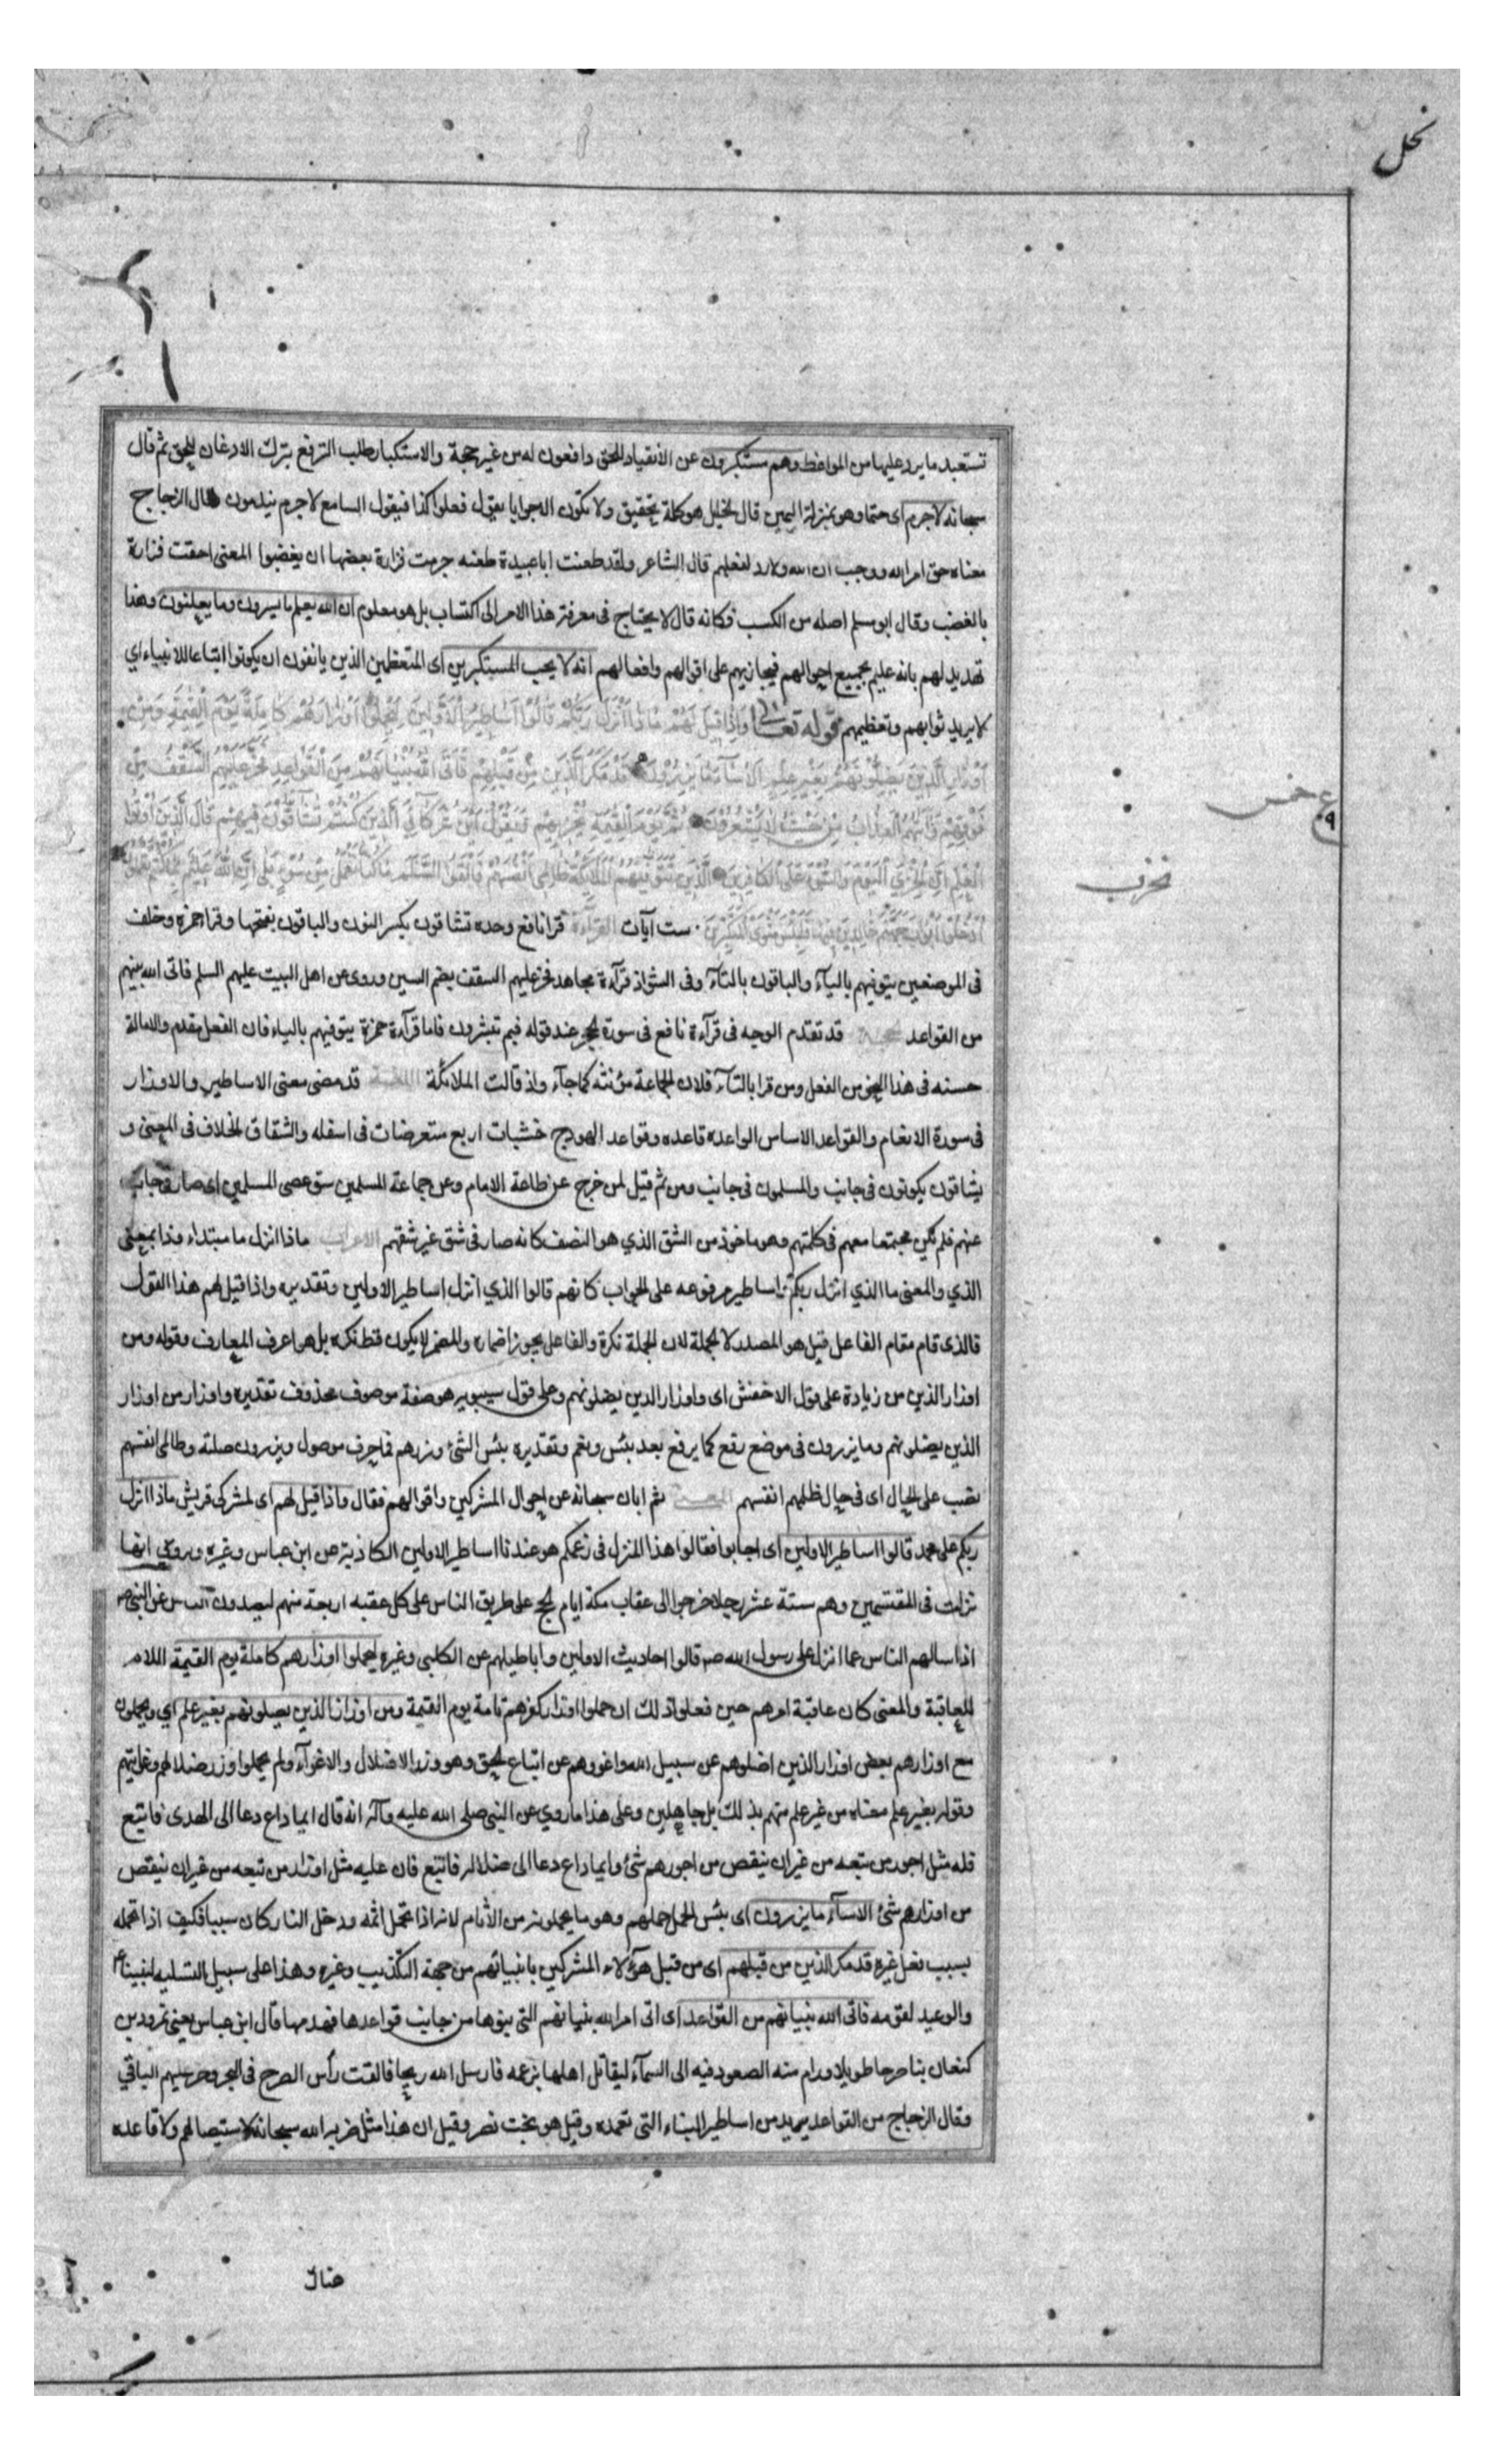 نحل
تستبعد ما يرد عليها من المواعظ وهم مستكبرون عن الانقياد للحق دافعون له من غير حجة والاستكبار طلب الترفع بترك الاذعان للحق ثم قال
سبحانه لا جرم اى حتما وهو بمنزلة اليمين قال الخليل هو كلمة تحقيق ولا تكون الا جوابا يقول فعلوا كذا فيقول السامع لا جرم يندمون قال الزجاج
معناه حق امر الله ووجب ان الله ولا رد لفعلهم قال الشاعر ولقد طعنت ابا عبيدة طعنه جرمت فزارة بعضها ان يغضبوا المعنى احقت فزارة
بالغضب وقال ابو مسلم اصله من الكسب فكانه قال لا يحتاج فى معرفة هذا الامر الى اكتساب بل هو معلوم ان الله يعلم ما يسرون وما يعلنون وهذا
تهديد لهم بانه عليم بجميع احوالهم فيجازيهم على اقوالهم وافعالهم انه لا يحب المستكبرين اى المتعظمين الذين يانفون ان يكونوا اتباعا للانبياء اي
لا يريد ثوابهم وتعظيمهم قوله تعالى وَاِذَا قِيلَ لَهُمْ مَاذَا اَنْزَلَ رَبُّكُمْ قَالُوا اَسَاطِيرُ الْاَوَّلِينَ لِيَحْمِلُوا اَوْزَارَهُمْ كَامِلَةً يَوْمَ الْقِيٰمَةِ وَمِنْ
اَوْزَارِ الَّذِينَ يُضِلُّونَهُمْ بِغَيْرِ عِلْمٍ اَلَا سَآءَ مَا يَزِرُونَ قَدْ مَكَرَ الَّذِينَ مِنْ قَبْلِهِمْ فَاَتَى اللهُ بُنْيَانَهُمْ مِنَ الْقَوَاعِدِ فَخَرَّ عَلَيْهِمُ السَّقْفُ مِنْ
فَوْقِهِمْ وَاَتٰهُمُ الْعَذَابُ مِنْ حَيْثُ لَا يَشْعُرُونَ ثُمَّ يَوْمَ الْقِيٰمَةِ يُخْزِيهِمْ وَيَقُولُ اَيْنَ شُرَكَآئِيَ الَّذِينَ كُنْتُمْ تُشَآقُّونَ فِيهِمْ قَالَ الَّذِينَ اُوتُوا
الْعِلْمَ اِنَّ الْخِزْيَ الْيَوْمَ وَالسُّوٓءَ عَلَى الْكَافِرِينَ الَّذِينَ تَتَوَفّٰيهُمُ الْمَلٰٓئِكَةُ ظَالِمِى اَنْفُسِهِمْ فَاَلْقَوُا السَّلَمَ مَا كُنَّا نَعْمَلُ مِنْ سُوٓءٍ بَلٰى اِنَّ اللهَ عَلِيمٌ بِمَا كُنْتُمْ تَعْمَلُونَ
فَادْخُلُوا اَبْوَابَ جَهَنَّمَ خَالِدِينَ فِيهَا فَلَبِئْسَ مَثْوَى الْمُتَكَبِّرِينَ ست آيات القراءة قرا نافع وحده تشاقون بكسر النون والباقون بفتحها وقرا حمزه وخلف
فى الموضعين يتوفيهم باليآء والباقون بالتآء وفى الشواذ قرآءة مجاهد فخر عليهم السقف بضم السين وروى عن اهل البيت عليهم السلم فاتى الله بيتهم
من القواعد الحجة قد تقدم الوجه فى قرآءة نافع فى سورة الحجر عند قوله فبم تبشرون فاما قرآءة حمزة يتوفيهم بالياء فان الفعل مقدم والامالة
حسنه فى هذا النحو من الفعل ومن قرا بالتآء فلان الجماعة مؤنثه كما جآء واذ قالت الملائكة اللغة قد مضى معنى الاساطير والاوزار
فى سورة الانعام والقواعد الاساس الواحدة قاعده وقواعد الهودج خشبات اربع متعرضات فى اسفله والشقاق الخلاف فى المعنى و
يشاقون يكونون فى جانب والمسلمون فى جانب ومن ثم قيل لمن خرج عن طاعة الامام وعن جماعة المسلمين شق عصى المسلمين اى صار فى جانب
عنهم فلم يكن مجتمعا معهم فى كلمتهم وهو ماخوذ من الشق الذي هو النصف كانه صار فى شق غير شقهم الاعراب ماذا انزل ما مبتداء وذا بمعنى
الذي والمعنى ما الذي انزل ربكم اساطير مرفوعه على الجواب كانهم قالوا الذي انزل اساطير الاولين وتقديره واذا قيل لهم هذا القول
فالذى قام مقام الفاعل قيل هو المصدر لا الجملة لان الجملة نكرة والفاعل يجوز اضماره والمضمر لا يكون قط نكره بل هو اعرف المعارف وقوله ومن
اوزار الذين من زيادة على قول الاخفش اى واوزار الذين يضلونهم وعلى قول سيبويه هو صفة موصوف محذوف تقديره واوزار من اوزار
الذين يضلونهم وما يزرون فى موضع رفع كما يرفع بعد بئس ونعم وتقديره بئس الشئ وزرهم فما حرف موصول ويزرون صلته وظالمى انفسهم
نصب على الحال اى فى حال ظلمهم انفسهم المعنى ثم ابان سبحانه عن احوال المشركين واقوالهم فقال واذا قيل لهم اى لمشركى قريش ماذا انزل
ربكم على محمد قالوا اساطير الاولين اى اجابوا فقالوا هذا المنزل فى زعمكم هو عندنا اساطير الاولين الكاذبة عن ابن عباس وغيره وروى انها
نزلت فى المقتسمين وهم ستة عشر رجلا خرجوا الى عقاب مكة ايام الحج على طريق الناس على كل عقبه اربعة منهم ليصدون الناس عن النبى ص
اذا سالهم الناس عما انزل على رسول الله صه قالوا احاديث الاولين واباطيلهم عن الكلبى وغيره ليحملوا اوزارهم كاملة يوم القيمة اللام
للعاقبة والمعنى كان عاقبة امرهم حين فعلوا ذلك ان حملوا اوزار كفرهم تامة يوم القيمة ومن اوزار الذين يضلونهم بغير علم اي ويحملون
مع اوزارهم بعض اوزار الذين اضلوهم عن سبيل الله واغووهم عن اتباع الحق وهو وزر الاضلال والاغوآء ولم يحملوا وزر ضلالهم وغوايتهم
وقوله بغير علم معناه من غير علم منهم بذلك بل جاهلين وعلى هذا ما روي عن النبى صلى الله عليه وآله انه قال ايما داع دعا الى الهدى فاتبع
فله مثل اجور من تبعه من غير ان ينقص من اجورهم شئ وايما داع دعا الى ضلاله فاتبع فان عليه مثل اوزار من تبعه من غير ان ينقص
من اوزارهم شئ الا سآء ما يزرون اى بئس الحمل حملهم وهو ما يحملونه من الآثام لانه اذا تحمل اثمه ودخل النار كان سيئا فكيف اذا تحمله
بسبب فعل غيره قد مكر الذين من قبلهم اى من قبل هؤلاء المشركين بانبيائهم من جهة التكذيب وغيره وهذا على سبيل التسليه لنبينا ع
والوعيد لقومه فاتى الله بنيانهم من القواعد اى اتى امر الله بنيانهم التى بنوها من جانب قواعدها فهدمها قال ابن عباس يعنى نمرود بن
كنعان بنا صرحا طويلا ورام منه الصعود فيه الى السمآء ليقاتل اهلها بزعمه فارسل الله ريحا فالقت رأس الصرح فى البحر وخر عليهم الباقي
وقال الزجاج من القواعد يريد من اساطير البناء التى تعمده وقيل هو بخت نصر وقيل ان هذا مثل ضربه الله سبحانه لاستيصالهم ولا قاعده
ع خمس
٩
هناك